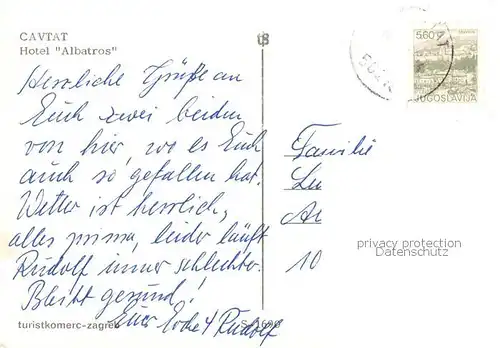 CAVTAT
Hotel "Albatros"
Herrliche Grüße an
Euch zwei beiden
von hier, wo es Euch
auch so gefallen hat.
Wetter ist herrlich,
alles prima, leider läuft
Rudolf immer schlechter.
Bleibt gesund!
Eure Erche + Rudolf
turistkomerc-zagreb
5.60
JUGOSLAVIJA
Familie
Lu
Ar
10
privacy protection
Datenschutz